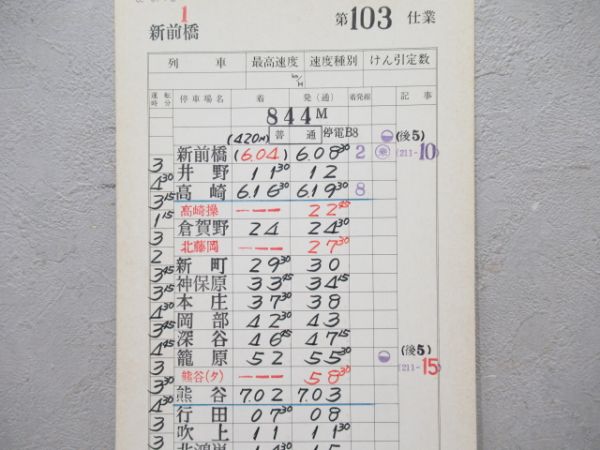 1
新前橋 第103仕業
列車 最高速度 速度種別 けん引定数
km/H
運転時分 停車場名 着 発(通) 着発線 記事
844M
(420M) 普通 停電B8 (後5)
新前橋 (6.04) 6.08 30 2 乗 (211-10)
3 井野 11 30 12
4 30 高崎 6.16 30 6.19 30 8
3 15 高崎操 ーーー 22 45
1 15 倉賀野 24 24 30
3 北藤岡 ーーー 27 30
2 新町 29 30 30
3 45 神保原 33 45 34 15
3 15 本庄 37 30 38
4 30 岡部 42 30 43
3 45 深谷 46 45 47 15 (後5)
籠原 52 55 30 (211-15)
熊谷(タ) ーーー 58 30
熊谷 7.02 7.03
4 30 行田 07 30 08
3 吹上 11 11 30
3